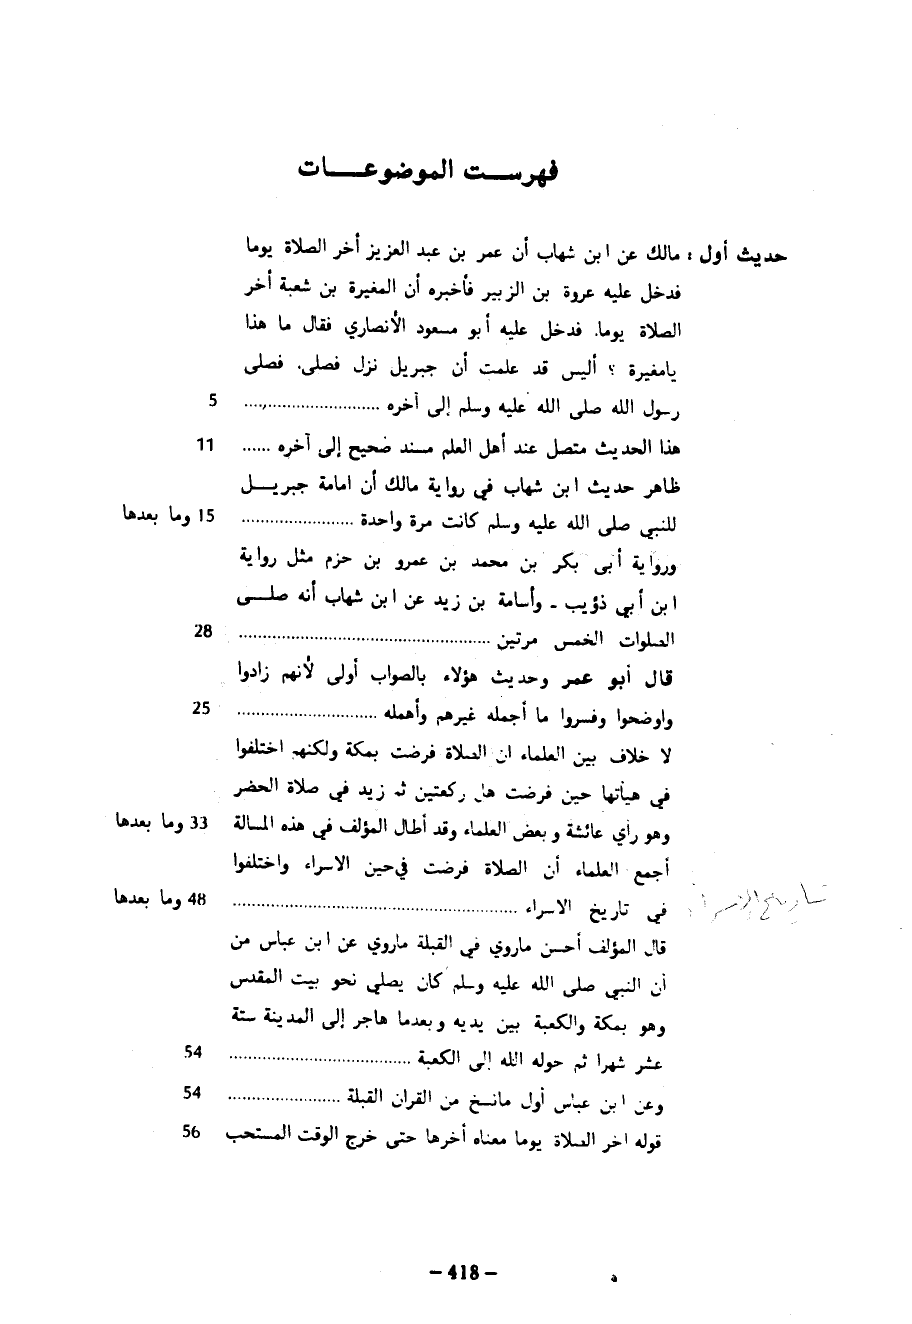 فهرست الموضوعات
حديث أول : مالك عن ابن شهاب أن عمر بن عبد العزيز أخر الصلاة يوما
فدخل عليه عروة بن الزبير فأخبره أن المغيرة بن شعبة أخر
الصلاة يوما. فدخل عليه أبو مسعود الأنصاري فقال ما هذا
يامغيرة ؟ أليس قد علمت أن جبريل نزل فصلى. فصلى
رسول الله صلى الله عليه وسلم إلى آخره ........................ 5
هذا الحديث متصل عند أهل العلم مسند صحيح إلى آخره ...... 11
ظاهر حديث ابن شهاب في رواية مالك أن امامة جبريل
للنبي صلى الله عليه وسلم كانت مرة واحدة ........................ 15 وما بعدها
ورواية أبى بكر بن محمد بن عمرو بن حزم مثل رواية
ابن أبي ذؤيب - وأسامة بن زيد عن ابن شهاب أنه صلى
الصلوات الخمس مرتين ........................ 28
قال أبو عمر وحديث هؤلاء بالصواب أولى لأنهم زادوا
واوضحوا وفسروا ما أجمله غيرهم وأهمله ........................ 25
لا خلاف بين العلماء ان الصلاة فرضت بمكة ولكنهم اختلفوا
في هيأتها حين فرضت هل ركعتين ثم زيد في صلاة الحضر
وهو رأي عائشة وبعض العلماء وقد أطال المؤلف في هذه المسالة 33 وما بعدها
أجمع العلماء أن الصلاة فرضت في حين الاسراء واختلفوا
في تاريخ الاسراء ........................ 48 وما بعدها
تاريخ الإسراء
قال المؤلف أحسن ماروي في القبلة ماروي عن ابن عباس من
أن النبي صلى الله عليه وسلم كان يصلي نحو بيت المقدس
وهو بمكة والكعبة بين يديه وبعدما هاجر إلى المدينة ستة
عشر شهرا ثم حوله الله إلى الكعبة ........................ 54
وعن ابن عباس أول مانسخ من القران القبلة ........................ 54
قوله اخر الصلاة يوما معناه أخرها حتى خرج الوقت المستحب 56
– 418 –